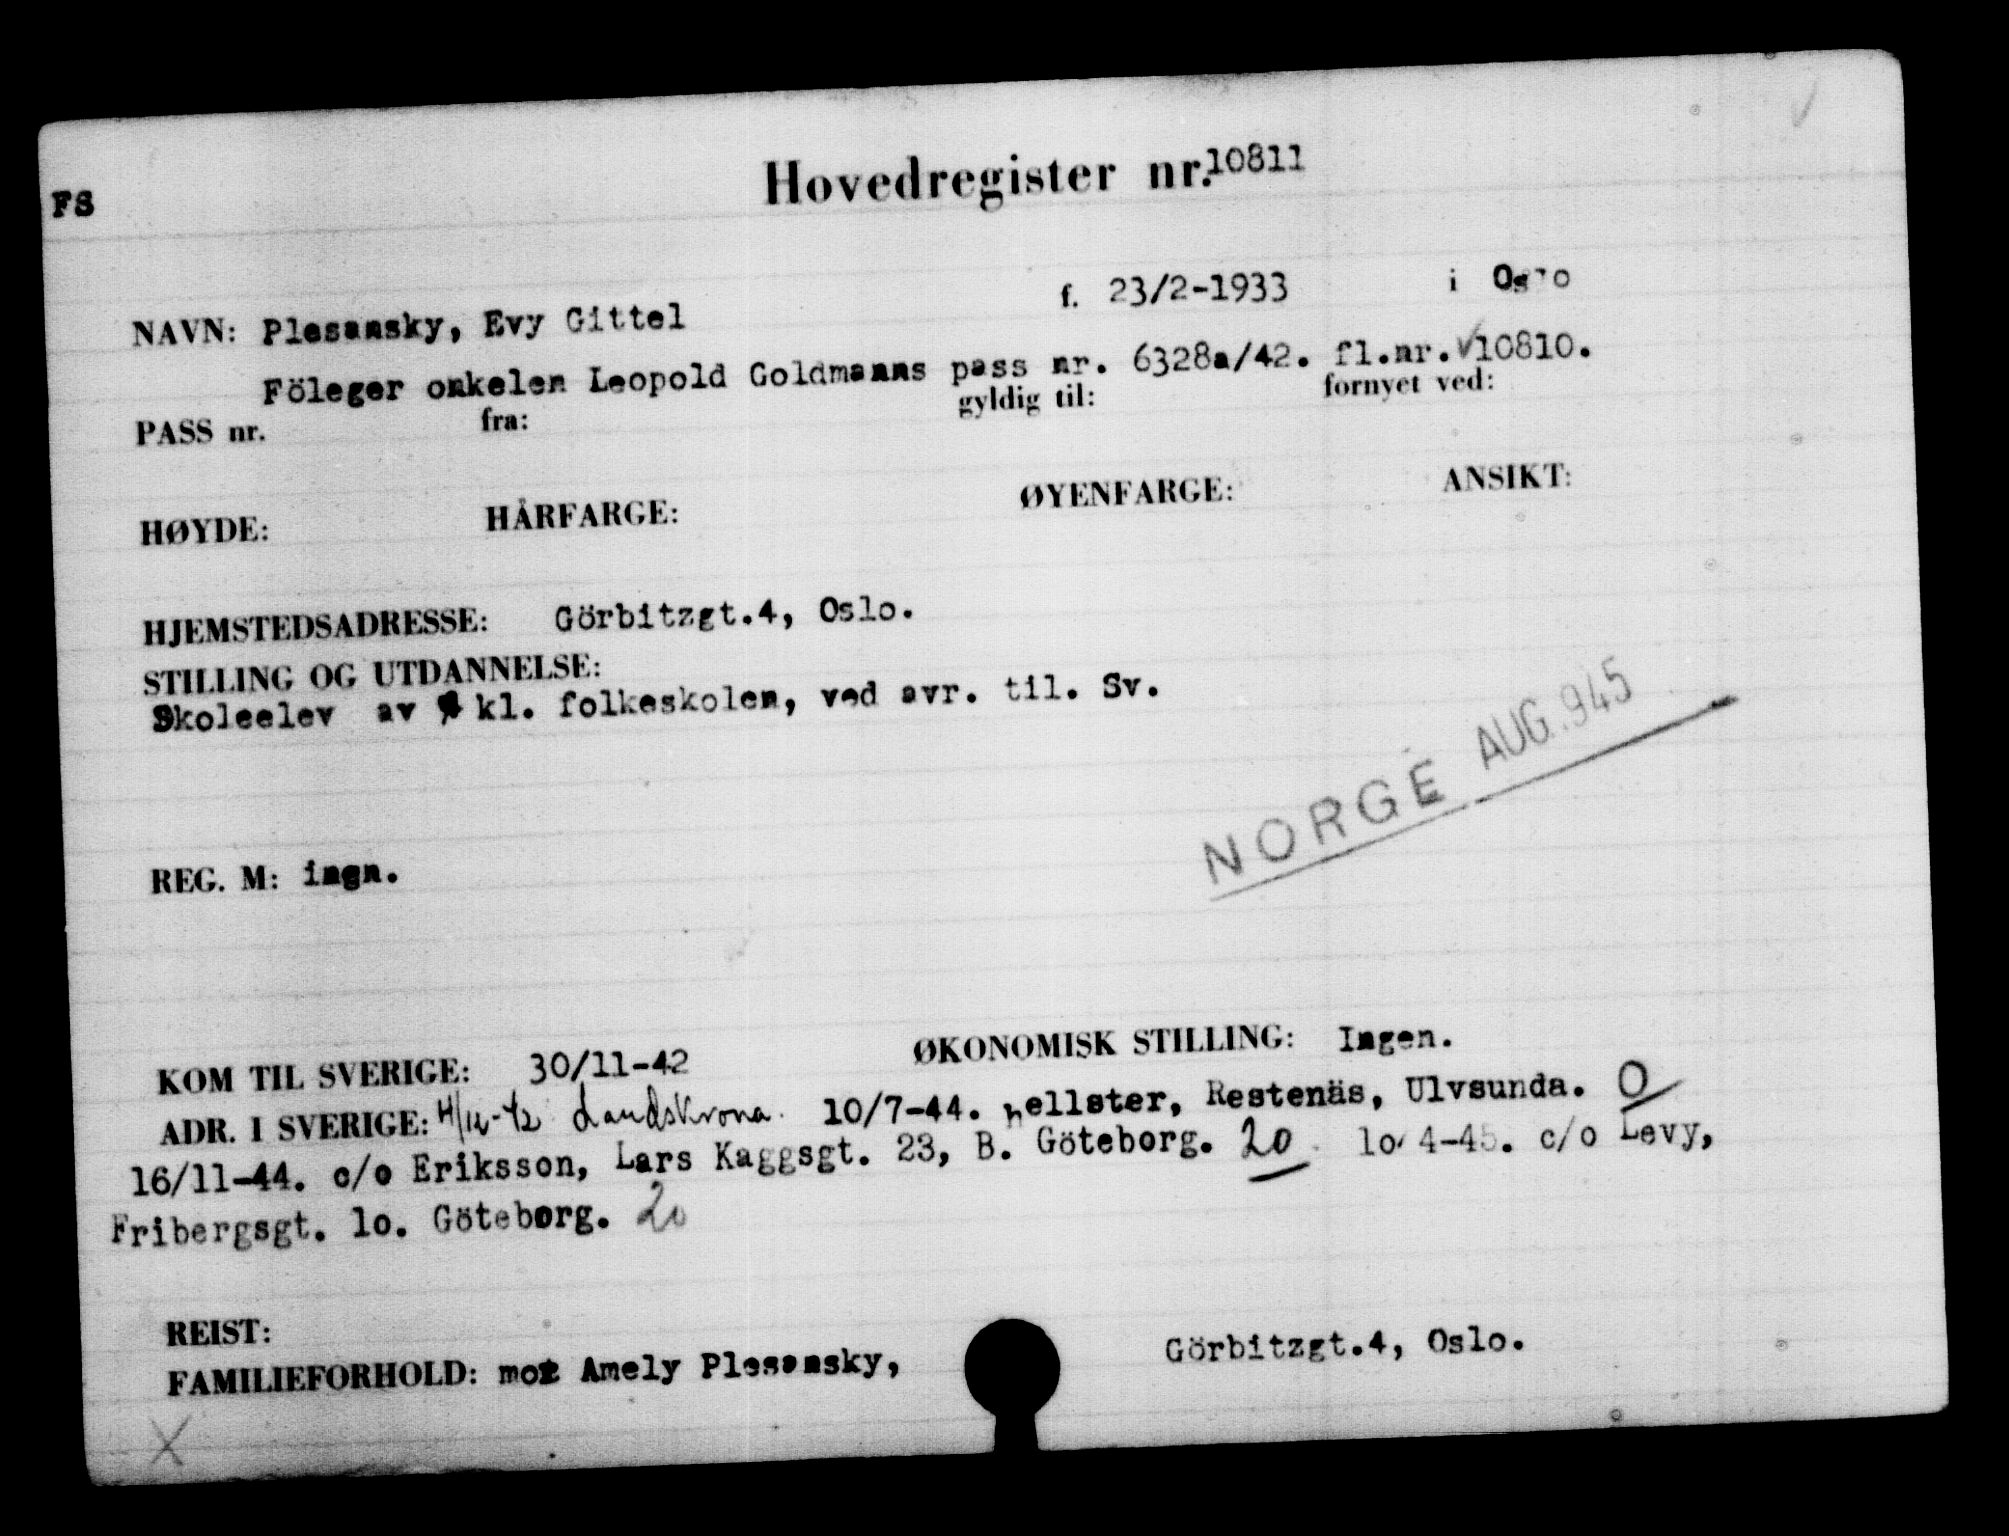 FS
Hovedregister nr. 10811
NAVN: Plesansky, Evy Gittel f. 23/2-1933 i Oslo
Föleger onkelen Leopold Goldmanns pass nr. 6328a/42. fl.nr. 10810.
PASS nr. fra: gyldig til: fornyet ved:
HØYDE: HÅRFARGE: ØYENFARGE: ANSIKT:
HJEMSTEDSADRESSE: Görbitzgt.4, Oslo.
STILLING OG UTDANNELSE:
Skoleelev av kl. folkeskolen, ved avr. til. Sv.
NORGE AUG. 945
REG. M: ingn.
KOM TIL SVERIGE: 30/11-42 ØKONOMISK STILLING: Ingen.
ADR. I SVERIGE: 4/12-42 Landskrona. 10/7-44. hellster, Restenäs, Ulvsunda. O
16/11-44. c/o Eriksson, Lars Kaggsgt. 23, B. Göteborg. 20 lo/4-45. c/o Levy,
Fribergsgt. lo. Göteborg. 20
REIST:
FAMILIEFORHOLD: mor Amely Plesansky, Görbitzgt.4, Oslo.
X